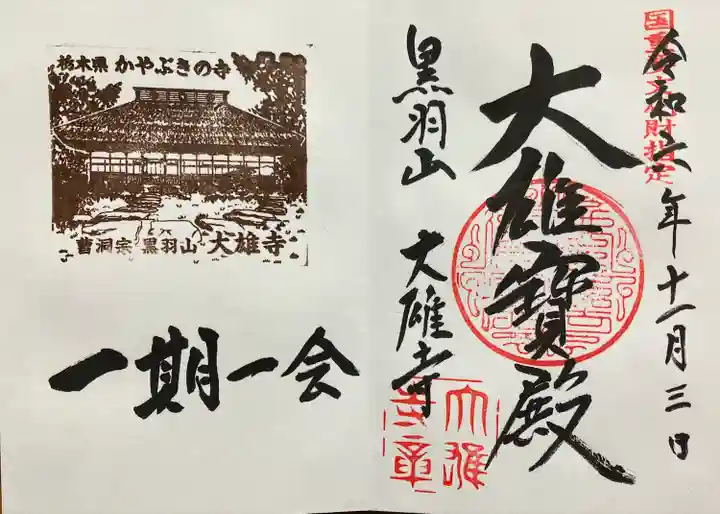 国重要文化財指定
令和六年十一月三日
大雄寳殿
黒羽山 大雄寺
大雄寺章
栃木県 かやぶきの寺
曹洞宗 黒羽山 大雄寺
一期一会